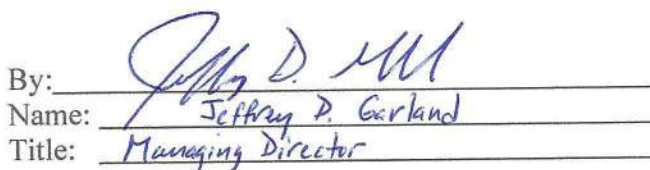 By: Jeffrey D.
Name: Jeffrey D. Garland
Title: Managing Director